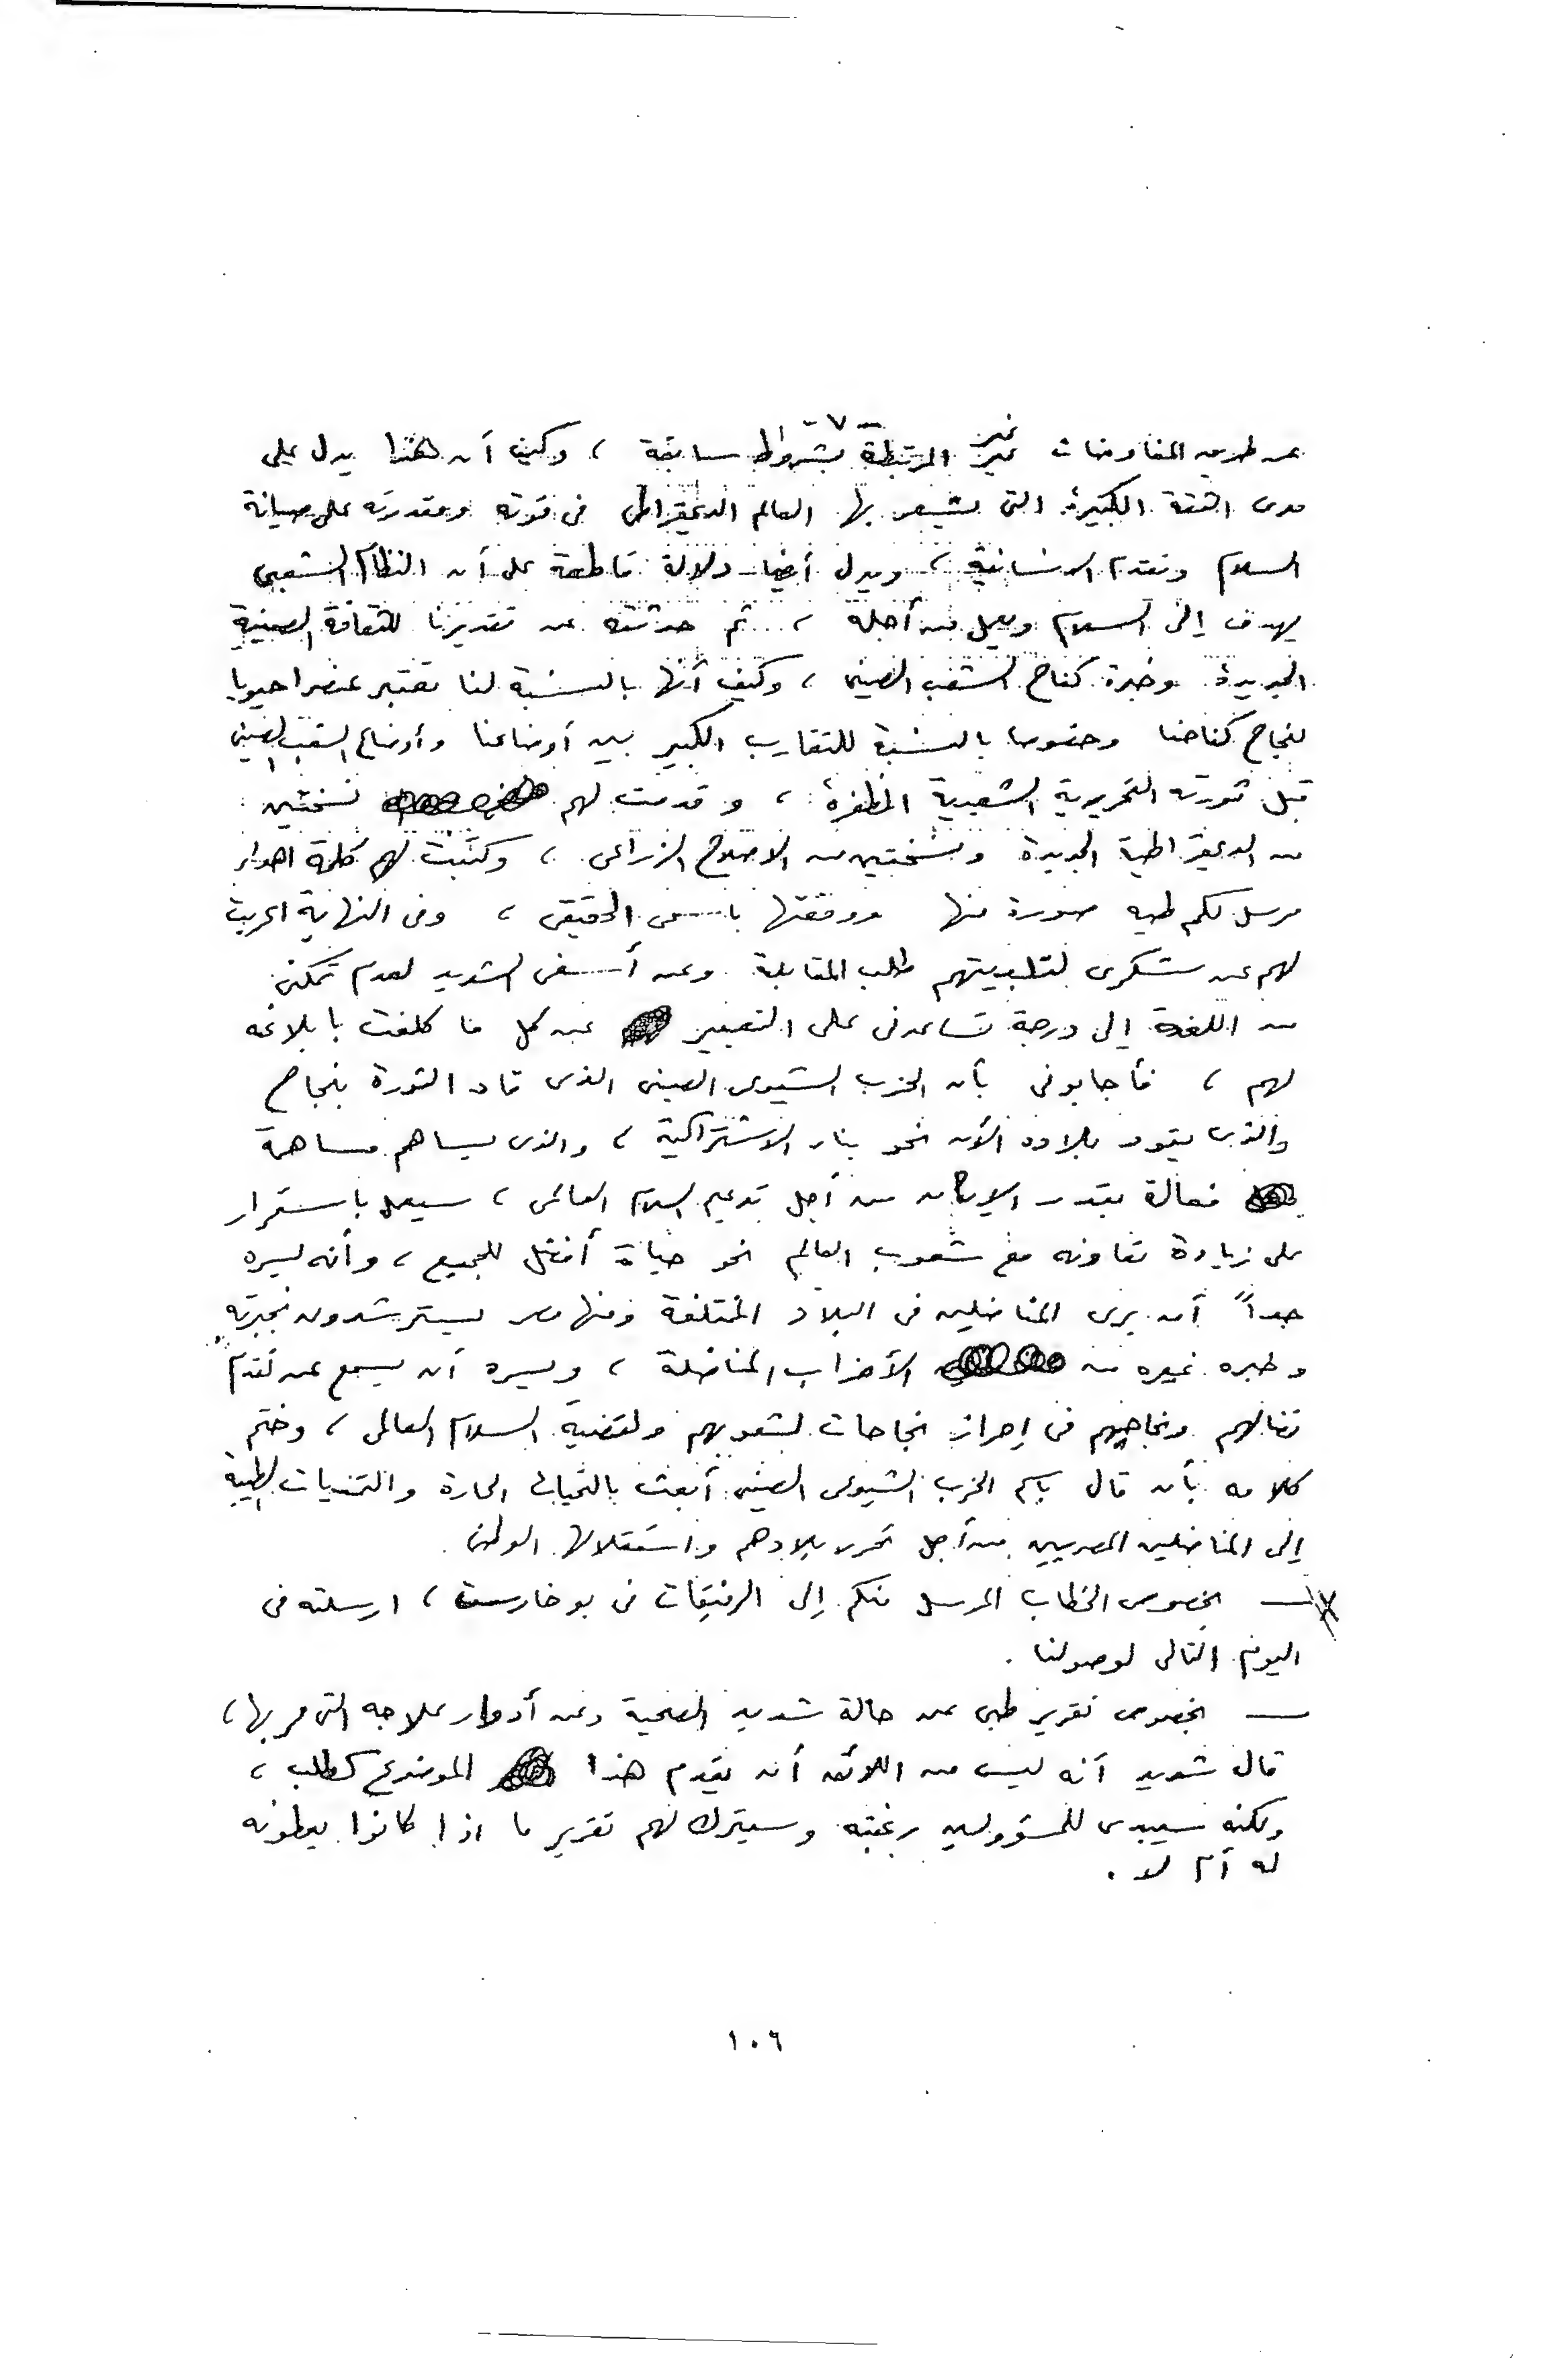 عن طريق المفاوضات غير المرتبطة بشروط سابقة ، وكيف أن هذا يدل على
مدى الثقة الكبيرة التى يشعر بها العالم الديمقراطى فى قوته ومقدرته على صيانة
السلام وتقدم الانسانية ، ويدل أيضا دلالة قاطعة على أن النظام الشعبى
يهدف إلى السلام ويعمل من أجله ، ثم حدثته عن تقديرنا للثقافة الصينية
الجديدة وخبرة كفاح الشعب الصينى ، وكيف أنها بالنسبة لنا تعتبر عنصرا حيويا
لنجاح كفاحنا وخصوصا بالنسبة للتقارب الكبير بين أوضاعنا وأوضاع الشعب الصينى
قبل ثورته التحريرية الشعبية المظفرة ، وقدمت لهم نسختين
من الديمقراطية الجديدة ونسختين من الاصلاح الزراعى ، وكتبت لهم كلمة اهداء
مرسل لكم طيه صورة منها ووقعتها باسمى الحقيقى ، وفى النهاية اعربت
لهم عن شكرى لتلبيتهم طلب المقابلة وعن أسفى الشديد لعدم تمكنى
من اللغة إلى درجة تساعدنى على التعبير عن كل ما كلفت بابلاغه
لهم ، فأجابونى بأن الحزب الشيوعى الصينى الذى قاد الثورة بنجاح
والذى يقود بلاده الآن نحو بناء الاشتراكية ، والذى يساهم مساهمة
فعالة بقدر الإمكان من أجل تدعيم السلام العالمى ، سيعمل باستمرار
على زيادة تعاونه مع شعوب العالم نحو حياة أفضل للجميع ، وأنه ليسره
جداً أن يرى المناضلين فى البلاد المختلفة ومنها مصر يسترشدون بخبرته
وخبره غيره من الأحزاب المناضلة ، ويسره أن يسمع عن تقدم
نضالهم ونجاحهم فى إحراز نجاحات لشعوبهم ولقضية السلام العالمى ، وختم
كلامه بأن قال باسم الحزب الشيوعى الصينى أبعث بالتحيات الحارة والتمنيات الطيبة
إلى المناضلين المصريين من أجل تحرر بلادهم واستقلالها الوطنى .
— بخصوص الخطاب المرسل منكم إلى الرفيقات فى بوخارست ، ارسلته فى
اليوم التالى لوصولنا .
— بخصوص تقرير طبى عن حالة شديد الصحية وعن أدوار علاجه التى مر بها ،
قال شديد أنه ليس من اللائق أن يقدم هذا الموضوع كطلب ،
ولكنه سيبدى للمسؤولين رغبته وسيترك لهم تقرير ما اذا كانوا يعطونه
له أم لا .
١٠٦